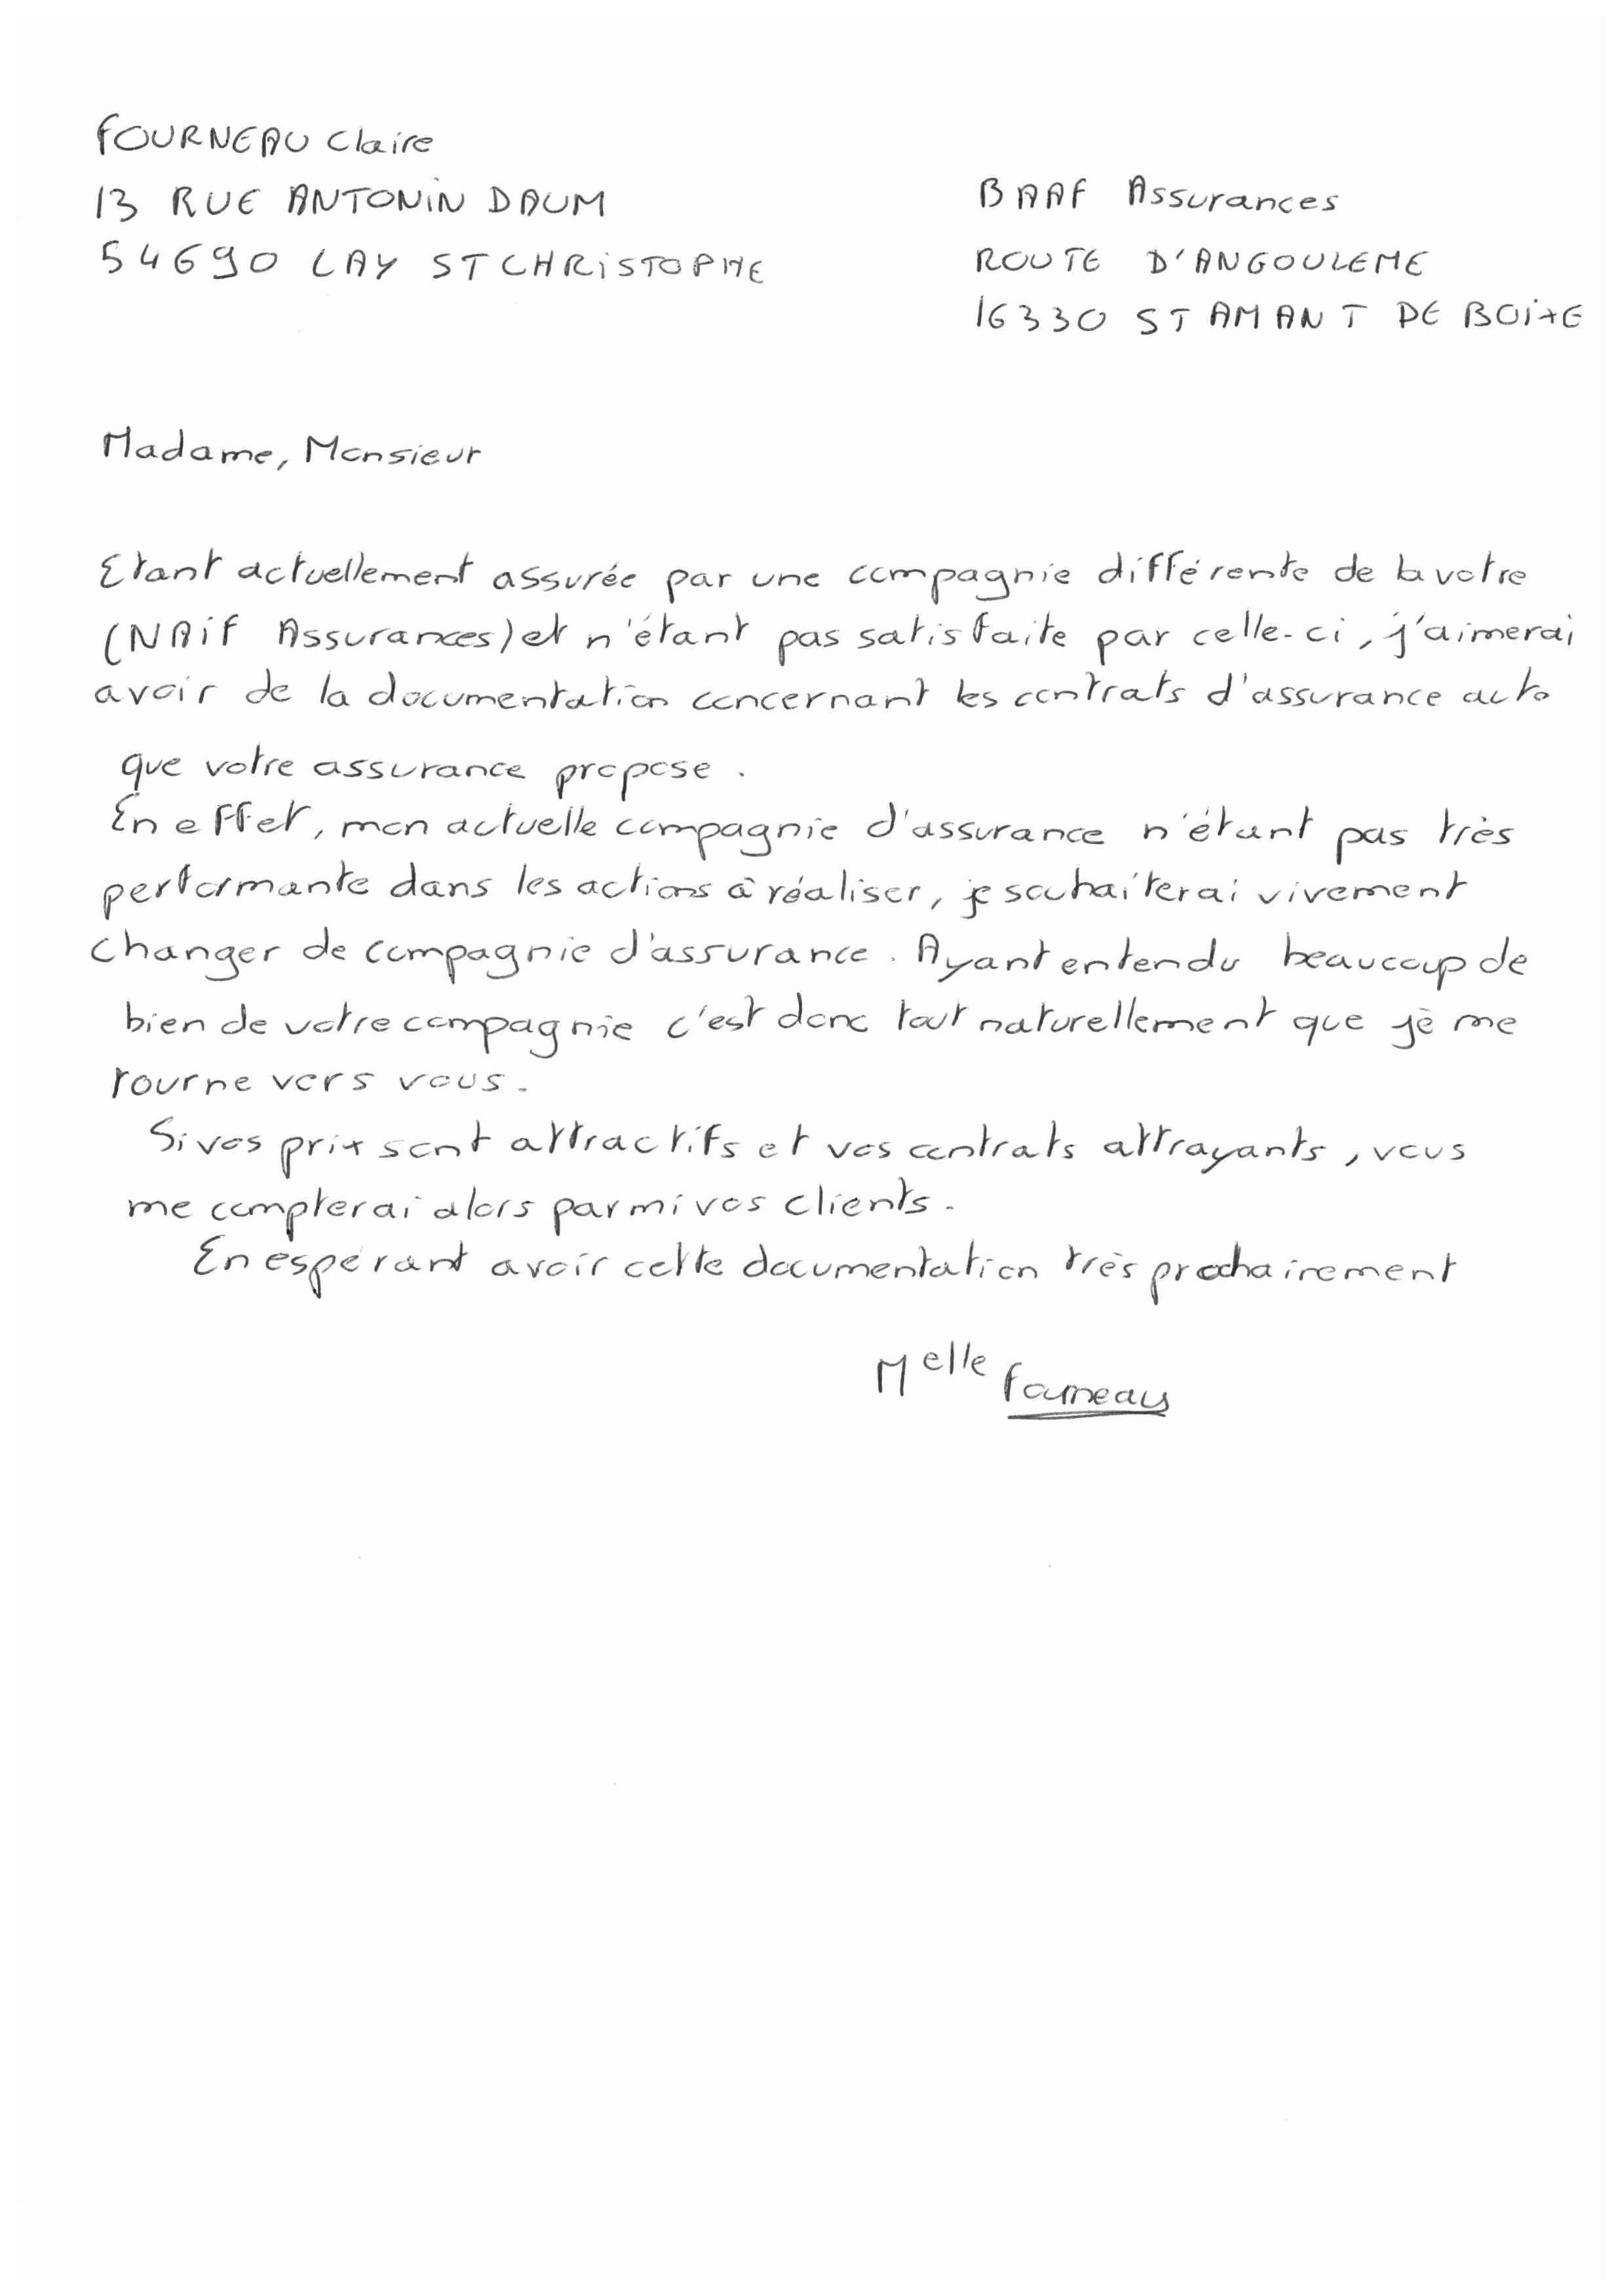 FOURNEAU Claire
13 RUE ANTONIN DAUM
54690 LAY ST CHRISTOPHE
BAAF Assurances
ROUTE D'ANGOULEME
16330 ST AMANT DE BOIXE
Madame, Monsieur
Etant actuellement assurée par une compagnie différente de la votre
(NAIF Assurances) et n'étant pas satisfaite par celle-ci, j'aimerai
avoir de la documentation concernant les contrats d'assurance auto
que votre assurance propose.
En effet, mon actuelle compagnie d'assurance n'étant pas très
performante dans les actions à réaliser, je souhaiterai vivement
changer de compagnie d'assurance. Ayant entendu beaucoup de
bien de votre compagnie c'est donc tout naturellement que je me
tourne vers vous.
Si vos prix sont attractifs et vos contrats attrayants, vous
me compterai alors parmi vos clients.
En espérant avoir cette documentation très prochainement
Melle Fourneau